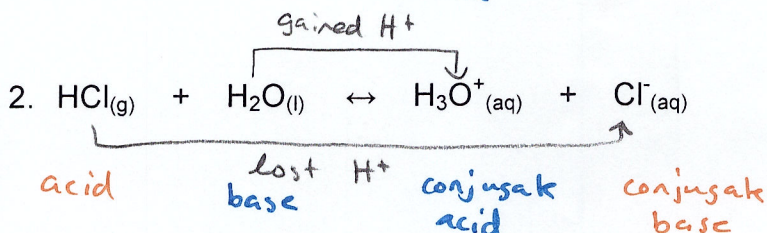 gained H+
2. HCl(g) + H₂O(l) ↔ H₃O⁺(aq) + Cl⁻(aq)
lost H+
acid base conjugate acid conjugate base